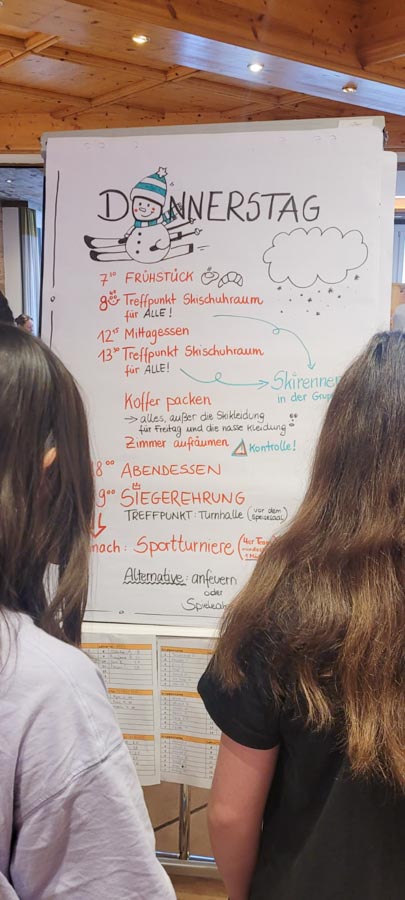 DONNERSTAG
7³⁰ FRÜHSTÜCK
Treffpunkt Skischuhraum
für ALLE!
12¹⁵ Mittagessen
13³⁰ Treffpunkt Skischuhraum
für ALLE!
Skirennen
in der
Koffer packen
→ alles, außer die Skikleidung
für Freitag und die nasse Kleidung
Zimmer aufräumen Kontrolle!
8⁰⁰ ABENDESSEN
9⁰⁰ SIEGEREHRUNG
TREFFPUNKT: Turnhalle (vor dem
Speisesaal)
nach: Sportturniere (4er
Alternative: anfeuern
oder